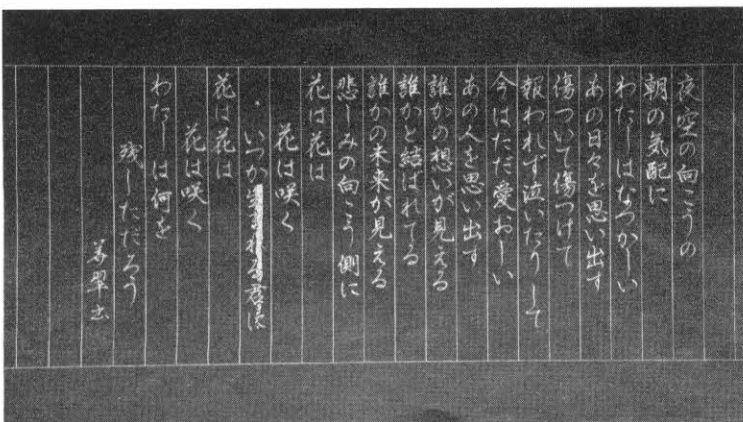 夜空の向こうの
朝の気配に
わたしはなつかしい
あの日々を思い出す
傷ついて傷つけて
報われず泣いたりして
今はただ愛おしい
あの人を思い出す
誰かの想いが見える
誰かと結ばれてる
誰かの未来が見える
悲しみの向こう側に
花は花は
花は咲く
いつか
花は花は
花は咲く
わたしは何を
残しただろう